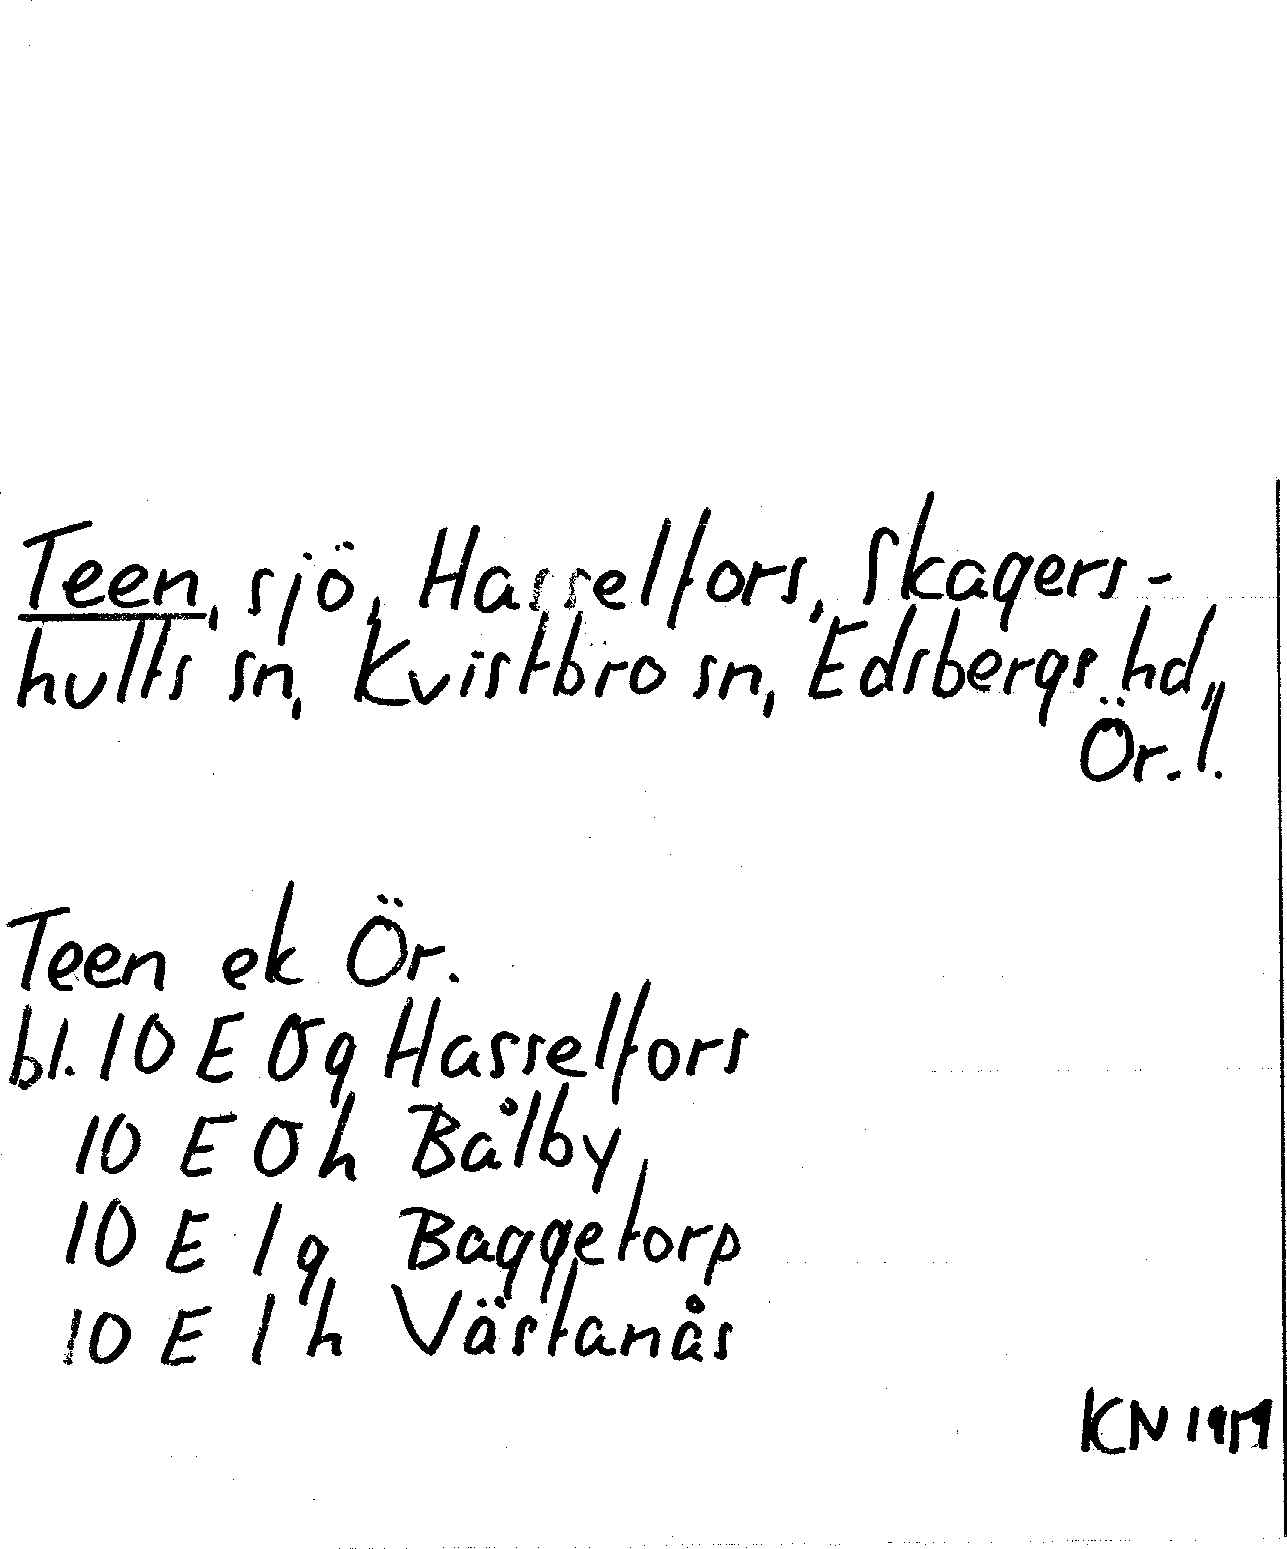 Teen, sjö, Hasselfors, Skagers-
hults sn, Kvistbro sn, Edsbergs hd,
Ör. l.
Teen ek Ör.
bl. 10 E 0g Hasselfors
10 E 0h Bålby
10 E 1g Baggetorp
10 E 1h Västanås
KN